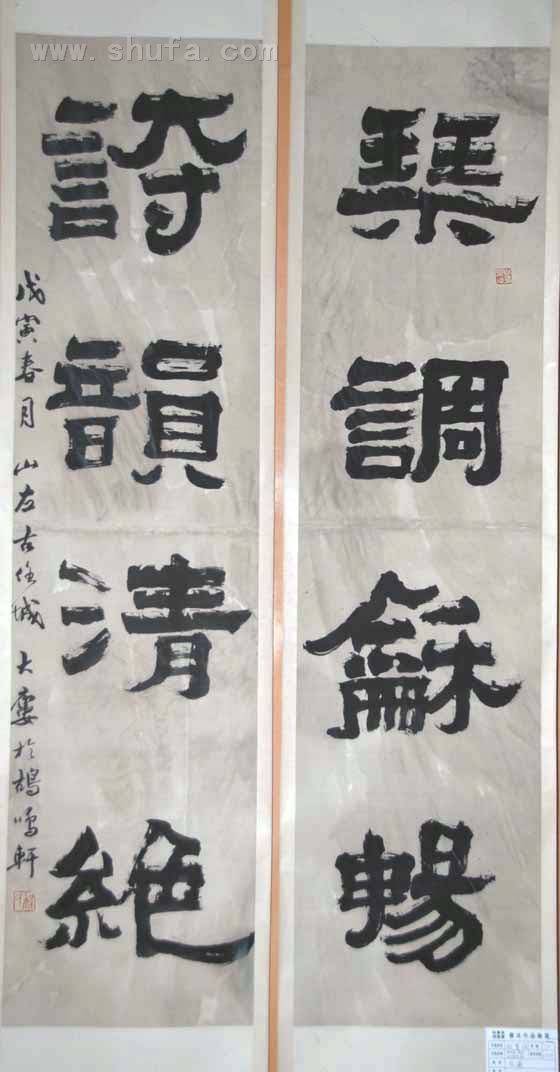 www.shufa.com
琴調龢暢
詩韻清絶
戊寅春月 山左古任城 大 於 鳴軒